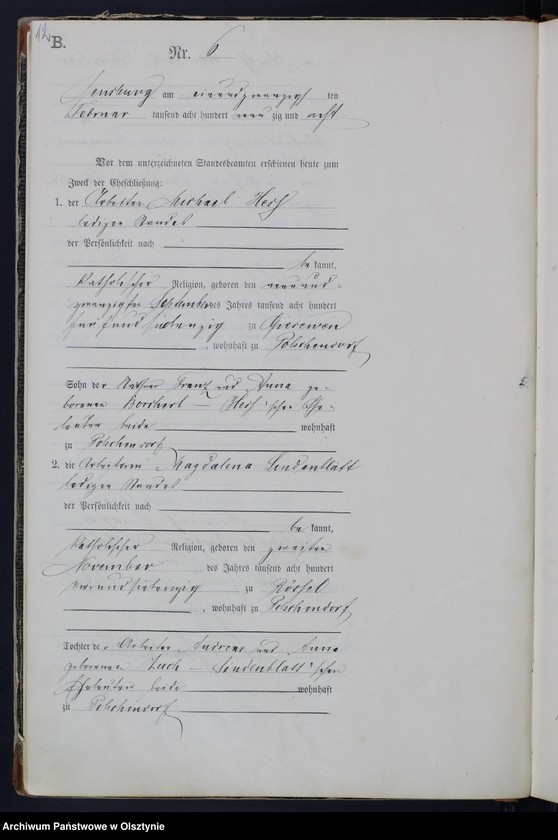 12
B.
Nr. 6
Sensburg am einundzwanzigsten
Februar tausend acht hundert neun zig und acht
Vor dem unterzeichneten Standesbeamten erschienen heute zum
Zweck der Eheschließung:
1. der Arbeiter Michael
ledigen Standes
der Persönlichkeit nach
be kannt,
katholischer Religion, geboren den neunund-
zwanzigsten September des Jahres tausend acht hundert
fünfundsiebenzig zu
, wohnhaft zu Polschendorf
Sohn der Franz und Anna ge-
borenen Borchert - 'schen Ehe-
leuten beide wohnhaft
zu Polschendorf
2. die Arbeiterin Magdalena Lindenblatt
ledigen Standes
der Persönlichkeit nach
be kannt,
katholischer Religion, geboren den zweiten
November des Jahres tausend acht hundert
vierundsiebenzig zu Rössel
, wohnhaft zu Polschendorf
Tochter der Arbeiter Andreas und Anna
geborenen - Lindenblatt'schen
Eheleuten beide wohnhaft
zu Polschendorf
Archiwum Państwowe w Olsztynie